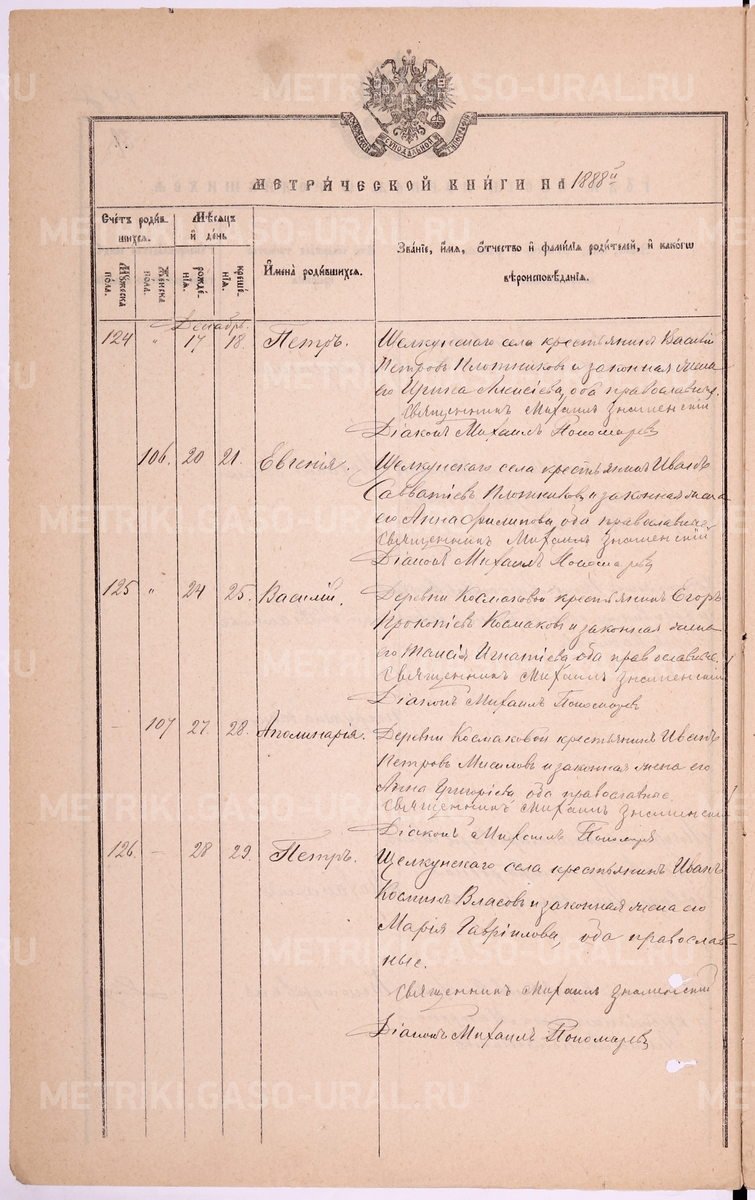 МОСКОВСКОЙ СѴНОДАЛЬНОЙ ТИПОГРАФІИ
МЕТРИ́ЧЕСКОЙ КНИ́ГИ НА 1888й
Сче́тъ роди́в-
шихся.
Мѣ́сяцъ
и҆ де́нь
И҆мена̀ роди́вшихся.
Зва́ніе, и҆́мя, ѻ҆́тчество и҆ фами́лія роди́телей, и҆ како́гѡ
вѣроисповѣ́данія.
Мꙋ́жеска
пола.
Же́нска
пола.
рожде́-
нія.
креще́-
нія.
Декабрь.
124 " 17 18. Петръ. Щелкунскаго села крестьянинъ Василій
Петровъ Плотниковъ и законная жена
его Ирина Алисіева, оба православные.
Священникъ Михаилъ Знаменскій
Діаконъ Михаилъ Пономаревъ
106. 20 21. Евгенія. Щелкунскаго села крестьянинъ Иванъ
Савватіевъ Плотниковъ и законная жена
его Анна Филипова, оба православные
Священникъ Михаилъ Знаменскій
Діаконъ Михаилъ Пономаревъ
125 " 24 25. Василій. Деревни Космаковой крестьянинъ Егоръ
Прокопіевъ Космаковъ и законная жена
его Таисія Игнатіева, оба православные.
Священникъ Михаилъ Знаменскій
Діаконъ Михаилъ Пономаревъ
107 27. 28. Аполинарія. Деревни Космаковой крестьянинъ Иванъ
Петровъ и законная жена его
Анна Григоріева, оба православные.
Священникъ Михаилъ Знаменскій
Діаконъ Михаилъ Пономаревъ
126. — 28 29. Петръ. Щелкунскаго села крестьянинъ Иванъ
Косминъ Власовъ и законная жена его
Марія Гавріилова, оба православ-
ные.
Священникъ Михаилъ Знаменскій
Діаконъ Михаилъ Пономаревъ
METRIKI.GASO-URAL.RU